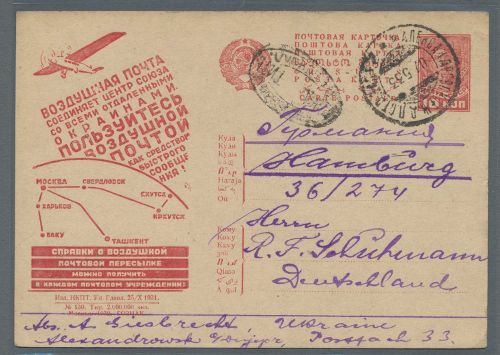 ВОЗДУШНАЯ ПОЧТА
СОЕДИНЯЕТ ЦЕНТР СОЮЗА
СО ВСЕМИ ОТДАЛЕННЫМИ
ОКРАИНАМИ.
ПОЛЬЗУЙТЕСЬ
ВОЗДУШНОЙ
ПОЧТОЙ
КАК СРЕДСТВОМ
БЫСТРОГО
СООБЩЕ
НИЯ!
МОСКВА
СВЕРДЛОВСК
ЯКУТСК
ХАРЬКОВ
ИРКУТСК
БАКУ
ТАШКЕНТ
СПРАВКИ О ВОЗДУШНОЙ
ПОЧТОВОЙ ПЕРЕСЫЛКЕ
МОЖНО ПОЛУЧИТЬ
В КАЖДОМ ПОЧТОВОМ УЧРЕЖДЕНИИ
Изд. НКПТ. Уп. Главл. 25/X 1931.
ПОЧТОВАЯ КАРТОЧКА
ПОШТОВА КАРТКА
CARTE POSTALE
10 КОП
Куда
Куди
Кому
Каму
Германия
Hamburg
36/274
Herrn
R. F. Schuhmann
Deutschland
Abs. A Giesbrecht, Ukraine
Alexandrowsk Postfach 33.